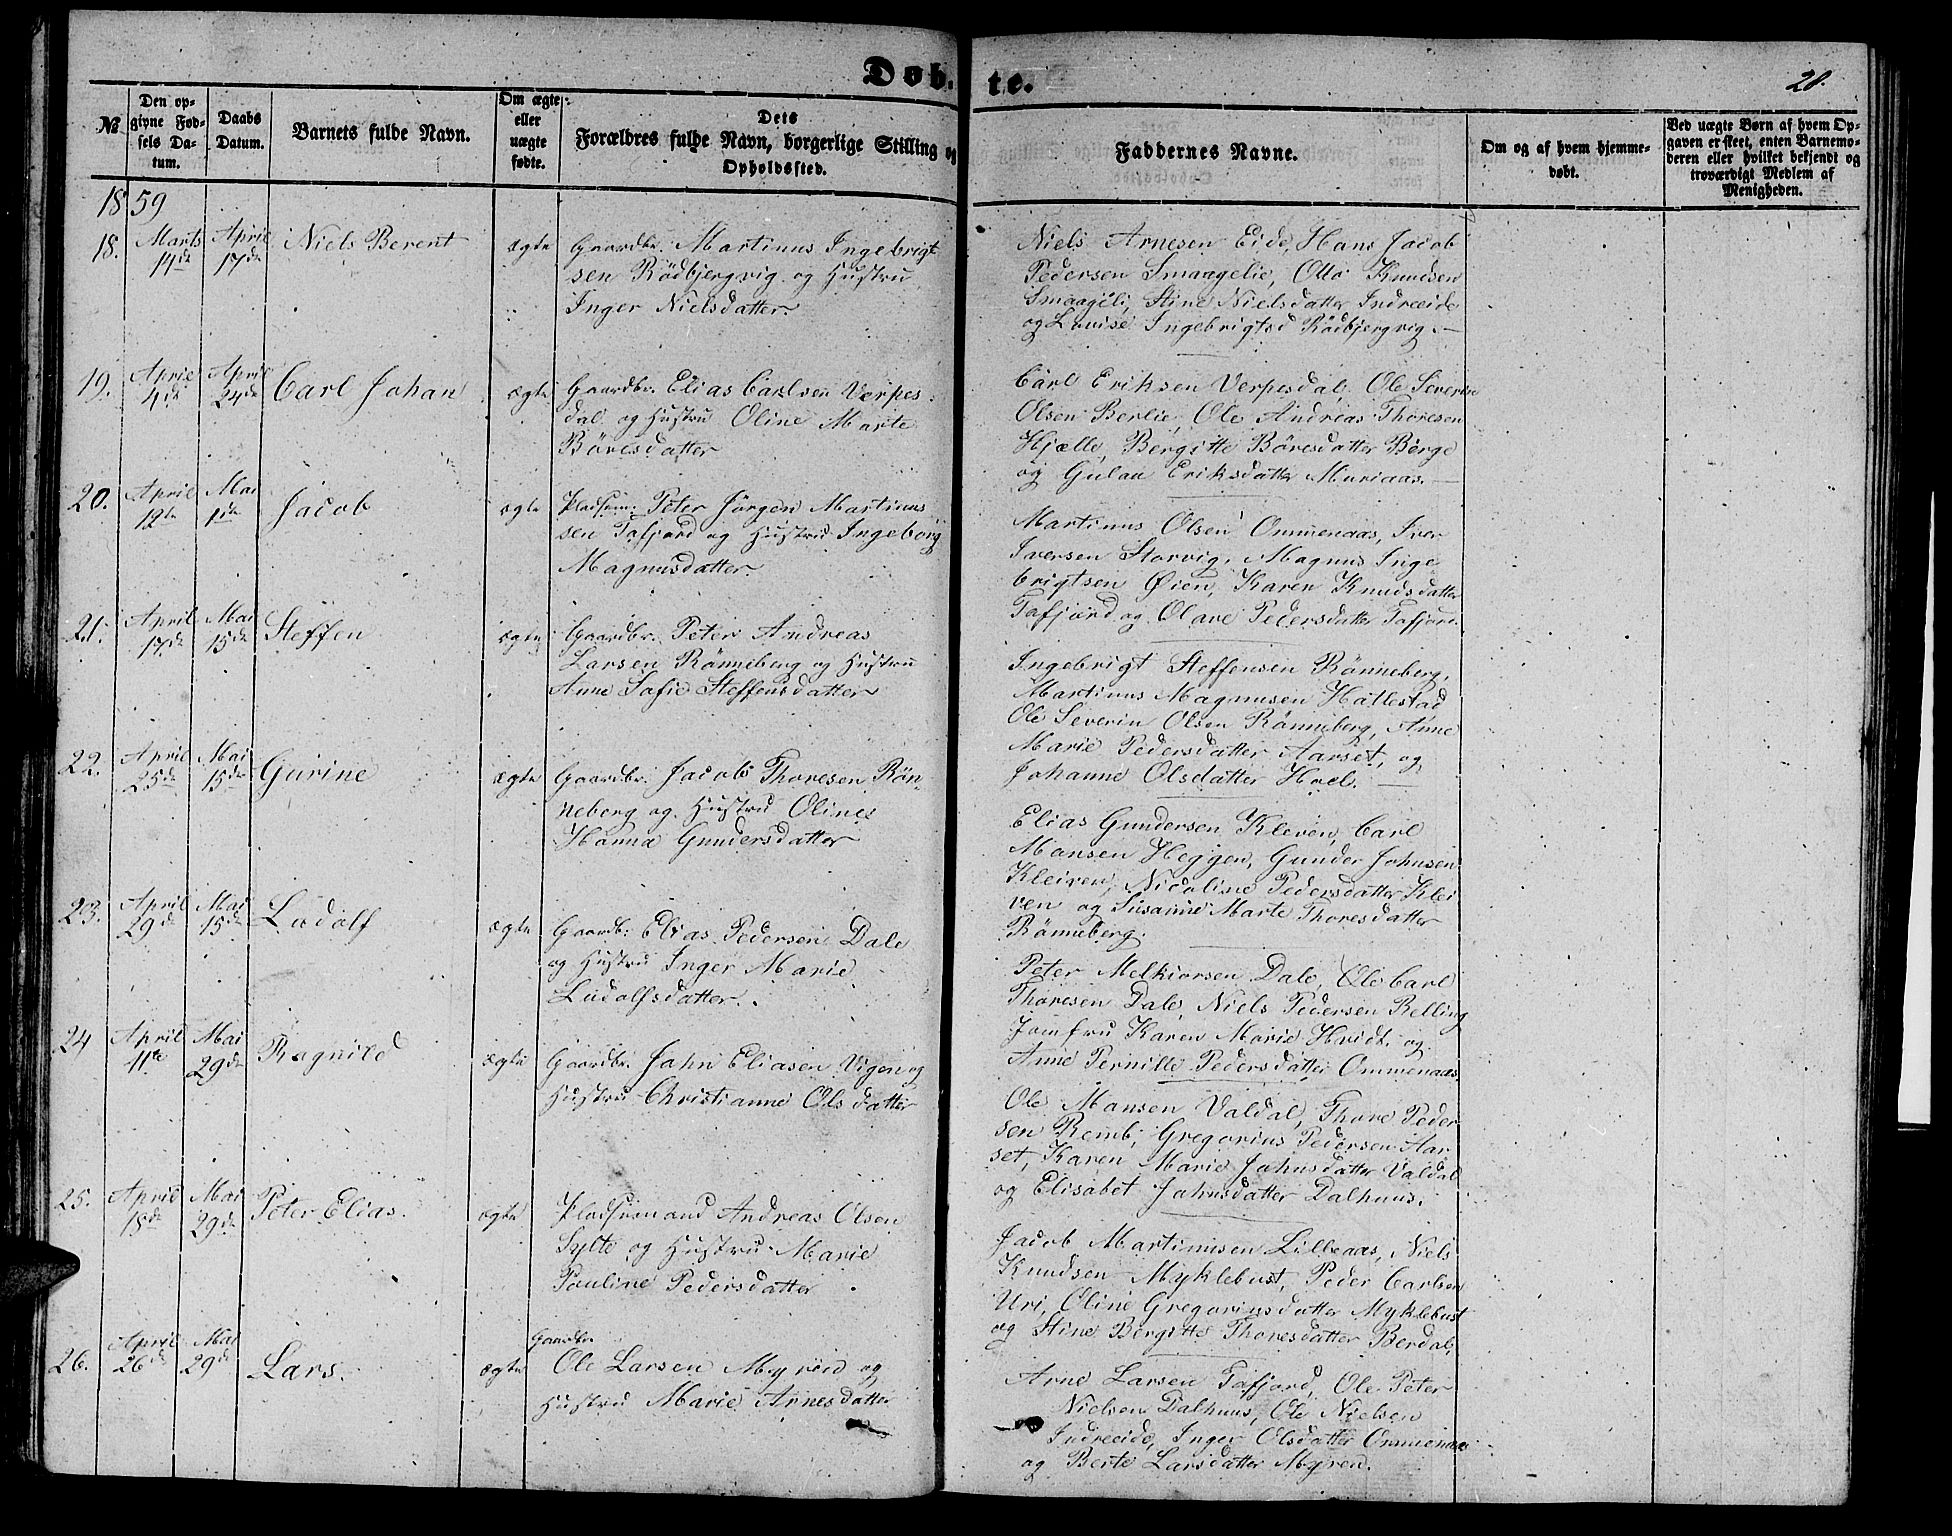 Døb. te.
28.
№
Den op-
givne Fød-
sels Da-
tum.
Daabs
Datum.
Barnets fulde Navn.
Om ægte
eller
uægte
fødte.
Dets
Forældres fulde Navn, borgerlige Stilling og
Opholdssted.
Faddernes Navne.
Om og af hvem hjemme-
døbt.
Ved uægte Børn af hvem Op-
gaven er skeet, enten Barnemo-
deren eller hvilket bekjendt og
troværdigt Medlem af
Menigheden.
1859
18.
Marts
14de
April
17de
Niels Berent
ægte
Gaardbr. Martinus Ingebrigt
sen Rödbjergvig og Hustru
Inger Nielsdatter
Niels Arnesen Eide, Hans Jacob
Pedersen Smaagelie, Otto Knudsen
Smaageli, Stine Nielsdatter Indreeide
og Lovise Ingebrigtsd Rödbjergvig.
19.
April
4de
April
24de
Carl Johan
ægte
Gaardbr. Elias Carlsen Verpes
dal og Hustru Oline Marte
Böresdatter
Carl Eriksen Verpesdal, Ole Severin
Olsen Berlie, Ole Andreas Thoresen
Hjelle, Bergitte Böresdatter Berge
og Gulau Eriksdatter Muriaas.
20.
April
12te
Mai
1ste
Jacob
ægte
Pladsm. Peter Jörgen Martinus
sen Tafjord og Hustru Ingeborg
Magnusdatter
Martinus Olsen Ommenaas, Iver
Iversen Storvig, Magnus Inge
brigtsen Øien, Karen Knudsdatter
Tafjord og Olave Pedersdatter Tafjord.
21.
April
17de
Mai
15de
Steffen
ægte
Gaardbr. Peter Andreas
Larsen Rönneberg og Hustru
Anne Sofie Steffensdatter
Ingebrigt Steffensen Rönneberg,
Martinus Magnusen Hallestad
Ole Severin Olsen Rönneberg, Anne
Marie Pedersdatter Aarset, og
Johanne Olsdatter Hoel.
22.
April
25de
Mai
15de
Gurine
ægte
Gaardbr. Jacob Thoresen Rön-
neberg og Hustru Oline
Hanna Gundersdatter
Elias Gundersen Kleven, Carl
Mansen Heggen, Gunder Johnsen
Kleiven, Nicoline Pedersdatter Klei
ven og Susanne Marte Thoresdatter
Rönneberg.
23.
April
29de
Mai
15de
Ludolf
ægte
Gaardb: Elias Pedersen Dale
og Hustru Inger Marie
Ludolfsdatter.
Peter Melkiorsen Dale, Ole Carl
Thoresen Dale, Niels Pedersen Relling
Jomfru Karen Marie Hvidt, og
Anne Pernille Pedersdatter Ommenaas
24
April
11te
Mai
29de
Ragnild
ægte
Gaardbr. John Eliasen Vigen og
Hustru Christianne Olsdatter
Ole Mansen Valdal, Thore Peder
sen Remb, Gregorius Pedersen Aar
set, Karen Marie Johnsdatter Valdal
og Elisabet Johnsdatter Dalhuus.
25.
April
18de
Mai
29de
Peter Elias.
ægte
Pladsmand Andreas Olsen
Sylte og Hustru Marie
Pauline Pedersdatter
Jacob Martinusen Lilleaas, Niels
Knudsen Myklebust, Peder Carlsen
Uri, Oline Gregoriusdatter Myklebust
og Stine Bergitte Thoresdatter Berdal,
26.
April
26de
Mai
29de
Lars.
ægte
Gaardbr
Ole Larsen Myröid og
Hustru Marie Arnesdatter
Arne Larsen Tafjord, Ole Peter
Nielsen Dalhuus, Ole Nielsen
Indreeide, Inger Olsdatter Ommenaas
og Berte Larsdatter Myren.